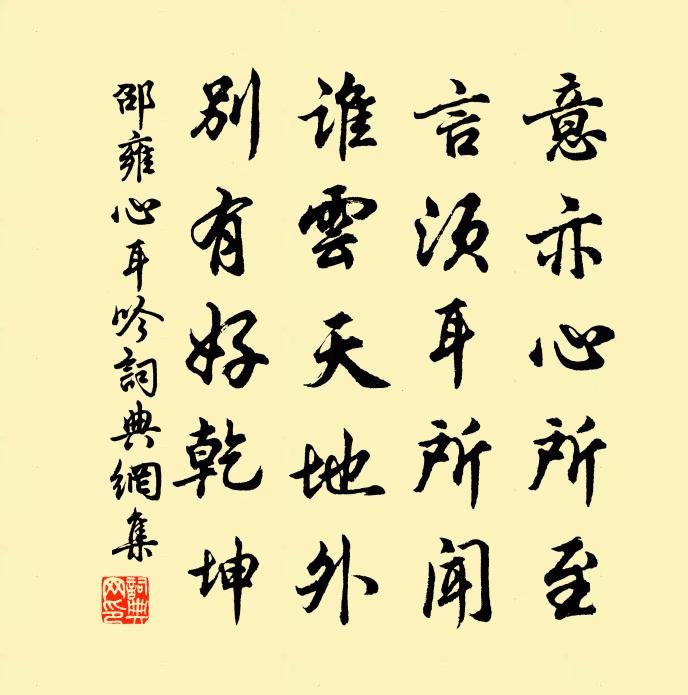 意亦心所至
言須耳所聞
誰雲天地外
別有好乾坤
邵雍心耳吟詞典網集
詞典網印